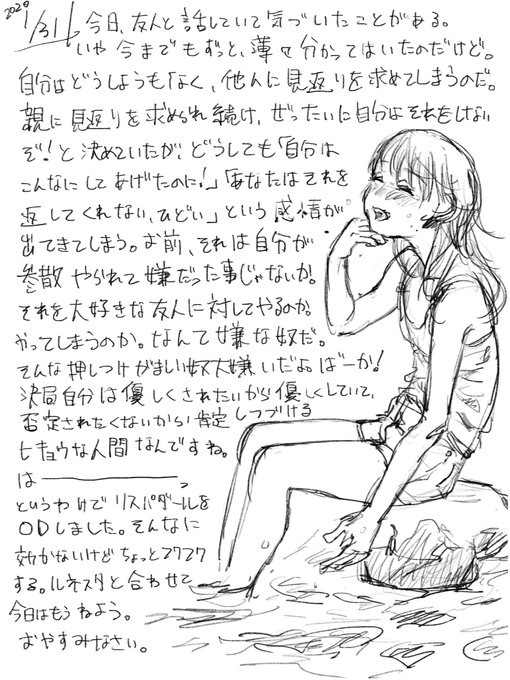 2020 1/31
今日、友人と話していて気づいたことがある。
いや今までもずっと、薄々分かってはいたのだけど。
自分はどうしようもなく、他人に見返りを求めてしまうのだ。
親に見返りを求められ続け、ぜったいに自分はそれをしない
ぞ!と決めていたが、どうしても「自分は
こんなにしてあげたのに!」「あなたはそれを
返してくれない、ひどい」という感情が
出てきてしまう。お前、それは自分が
参散やられて嫌だった事じゃないか。
それを大好きな友人に対してやるのか。
やってしまうのか。なんて嫌な奴だ。
そんな押しつけがましい奴大嫌いだよばーか!
決局自分は優しくされたいから優しくしていて、
否定されたくないから肯定しつづける
ヒキョウな人間なんですね。
は――――っ
というわけでリスパダールを
ODしました。そんなに
効かないけどちょっとフワフワ
する。ルネスタと合わせて
今日はもうねよう。
おやすみなさい。